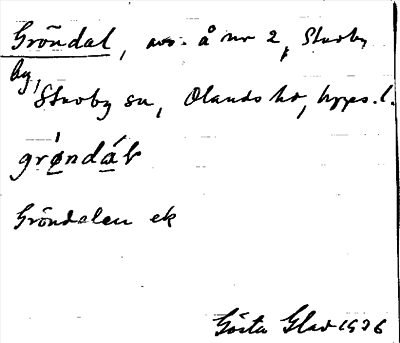 Gröndal, avs. å nr 2, Skuby
by,
Skuby sn, Olands hd, Upps. l.
grø̀ndáł
Gröndalen ek
Gösta Glad 1936